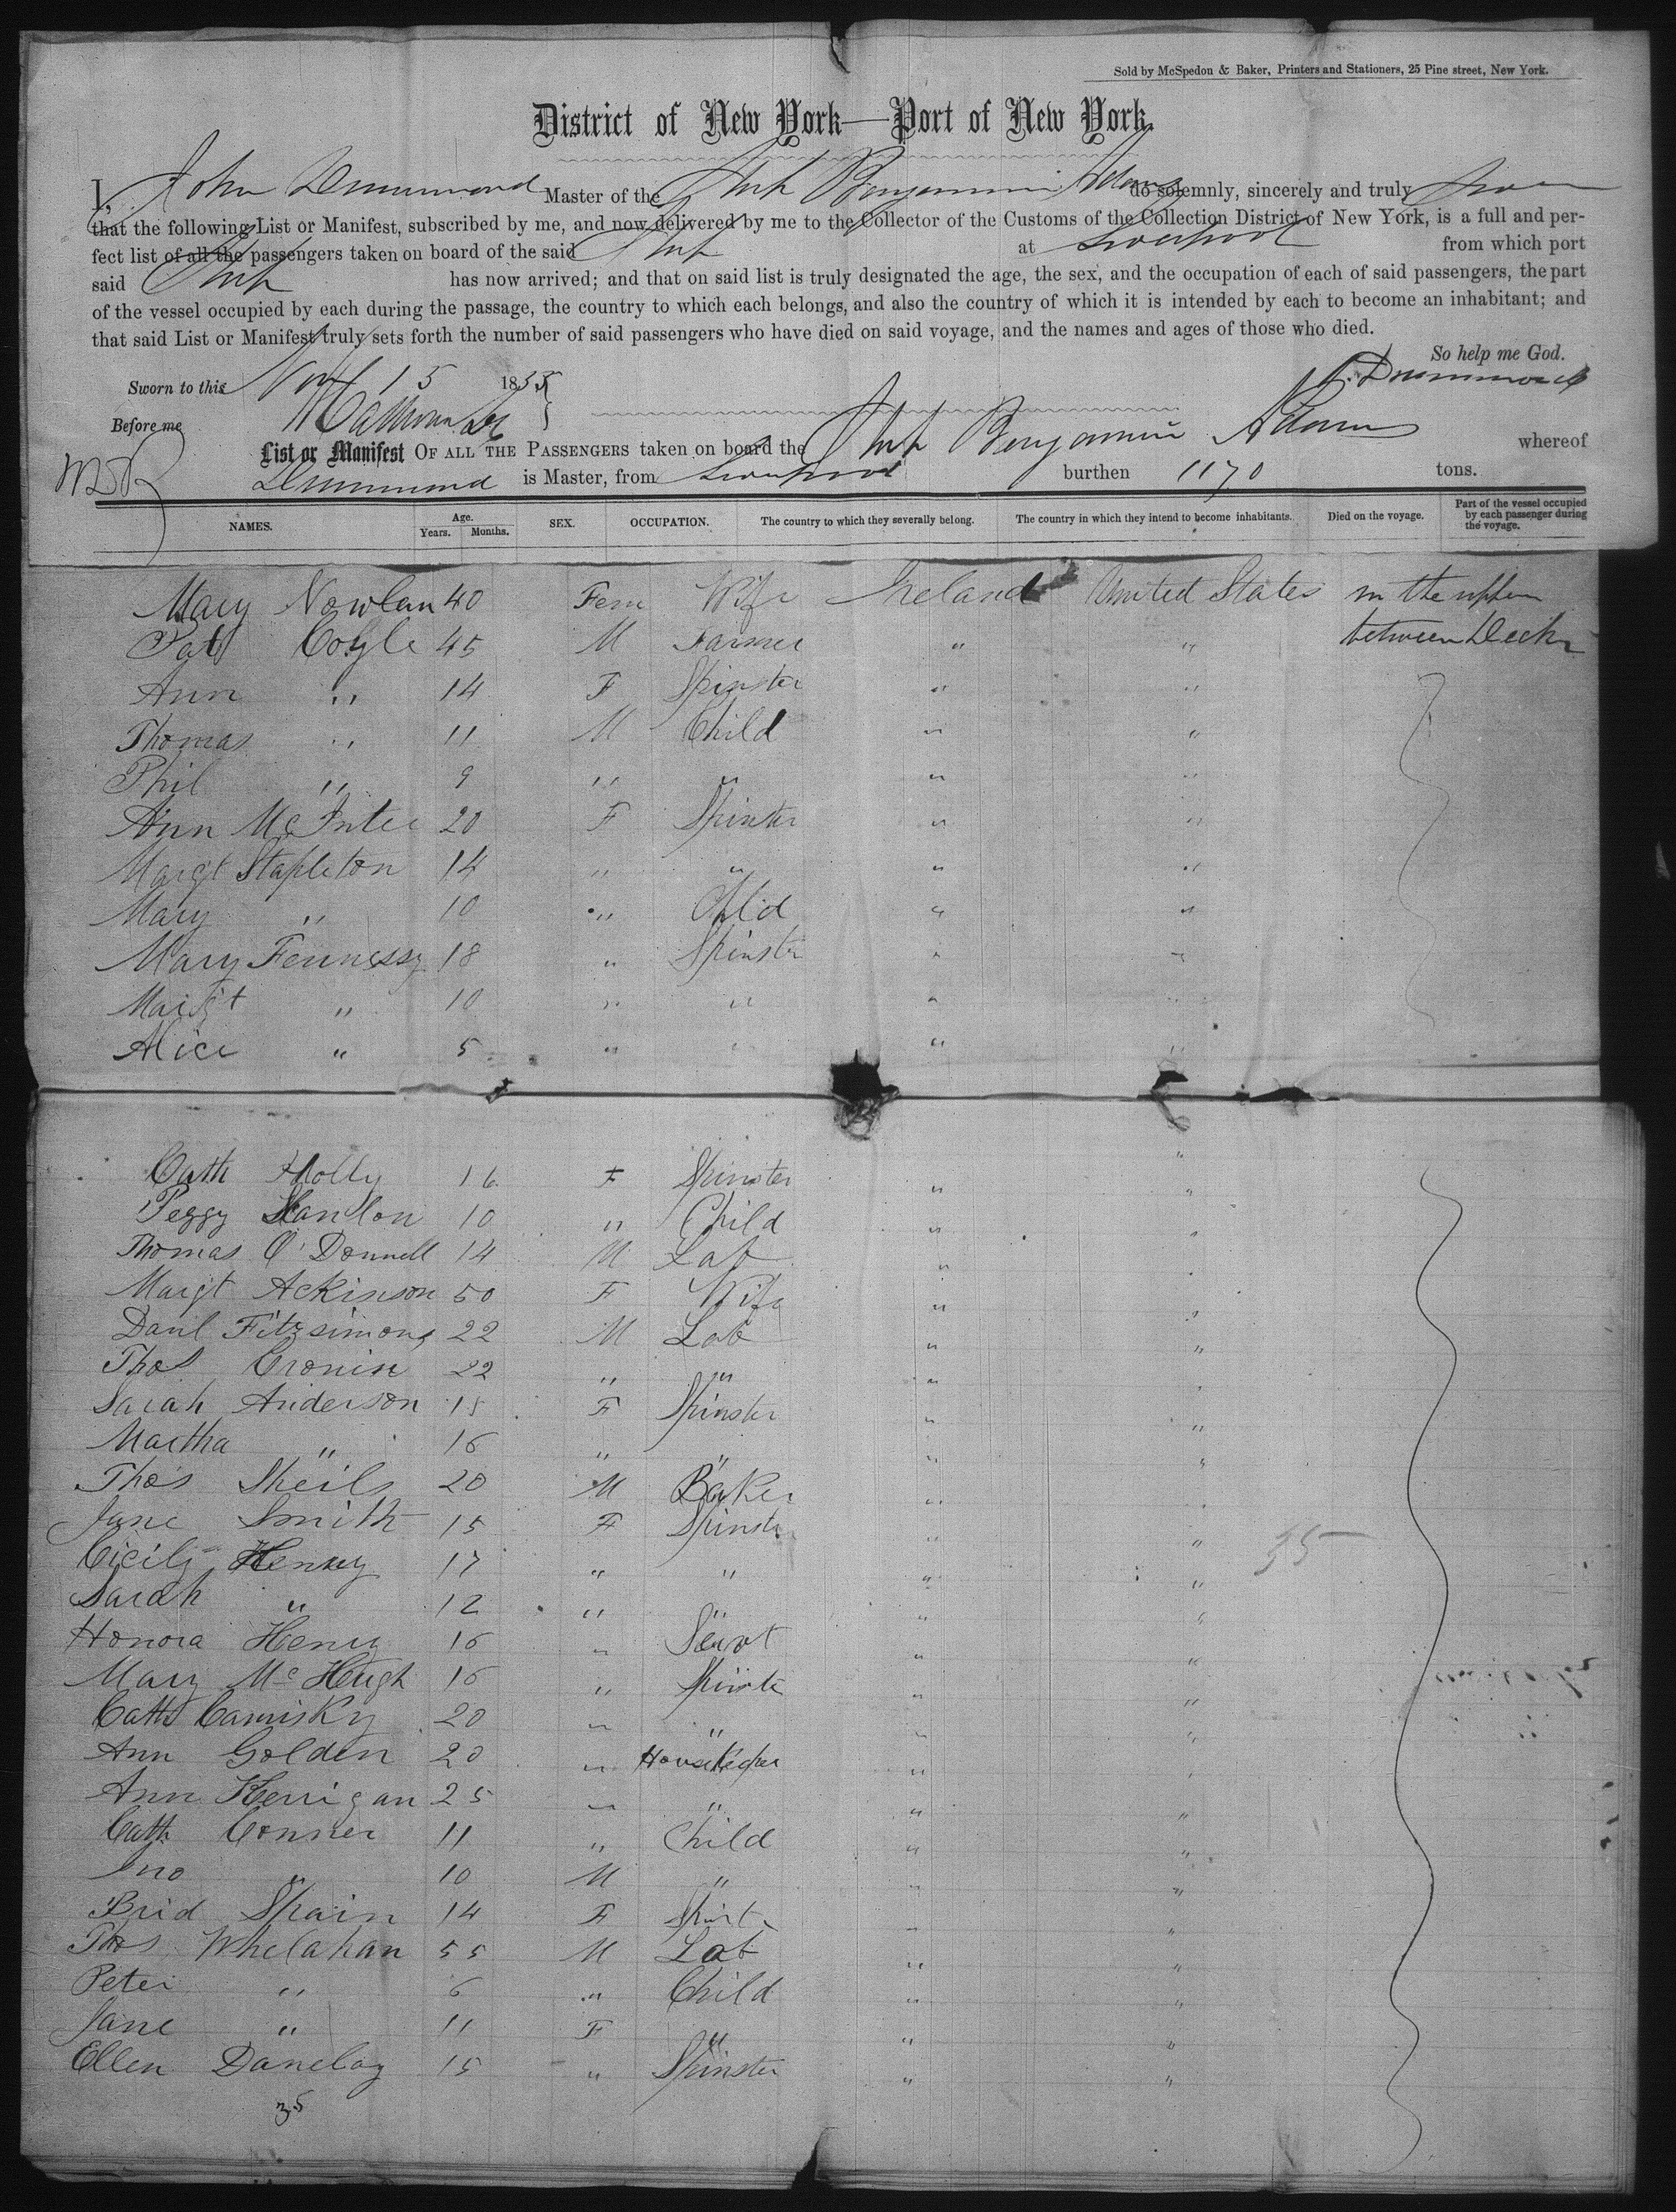 Sold by McSpedon & Baker, Printers and Stationers, 25 Pine street, New York.
District of New York—Port of New York.
I, John Drummond Master of the Ship Benjamin Adams do solemnly, sincerely and truly swear
that the following List or Manifest, subscribed by me, and now delivered by me to the Collector of the Customs of the Collection District of New York, is a full and per-
fect list of all the passengers taken on board of the said Ship at Liverpool from which port
said Ship has now arrived; and that on said list is truly designated the age, the sex, and the occupation of each of said passengers, the part
of the vessel occupied by each during the passage, the country to which each belongs, and also the country of which it is intended by each to become an inhabitant; and
that said List or Manifest truly sets forth the number of said passengers who have died on said voyage, and the names and ages of those who died.
So help me God.
Sworn to this Nov 15 1853 J. Drummond
Before me
List or Manifest OF ALL THE PASSENGERS taken on board the Ship Benjamin Adams whereof
Drummond is Master, from Liverpool burthen 1170 tons.
NAMES. Age. Years. Months. SEX. OCCUPATION. The country to which they severally belong. The country in which they intend to become inhabitants. Died on the voyage. Part of the vessel occupied by each passenger during the voyage.
Mary Nowlan 40 Fem Wife Ireland United States in the upper
Pat Coyle 45 M Farmer " " between Decks
Ann " 14 F Spinster " "
Thomas " 11 M Child " "
Phil " 9 " " " "
Ann McIntee 20 F Spinster " "
Margt Stapleton 14 " " " "
Mary " 10 " Child " "
Mary Fennessy 18 " Spinster " "
Margt " 10 " " " "
Alice " 5 " " " "
Cath Holly 16 F Spinster " "
Peggy Hanlon 10 " Child " "
Thomas O'Donnell 14 M Lab " "
Margt Ackinson 50 F Wife " "
Danl Fitzsimons 22 M Lab " "
Thos Cronin 22 " " " "
Sarah Anderson 18 F Spinster " "
Martha " 16 " " " "
Thos Sheils 20 M Baker " "
Jane Smith 15 F Spinster " "
Cicily Henry 17 " " " " 35
Sarah " 12 " " " "
Honora Henry 16 " Servt " "
Mary McHugh 16 " Spinster " "
Cath Camisky 20 " " " "
Ann Golden 20 " Housekeeper " "
Ann Kerrigan 25 " " " "
Cath Conner 11 " Child " "
Jno " 10 M " " "
Brid Spain 14 F Spinst " "
Thos Whelahan 55 M Lab " "
Peter " 6 " Child " "
Jane " 11 F " " "
Ellen Danelay 15 " Spinster " "
35